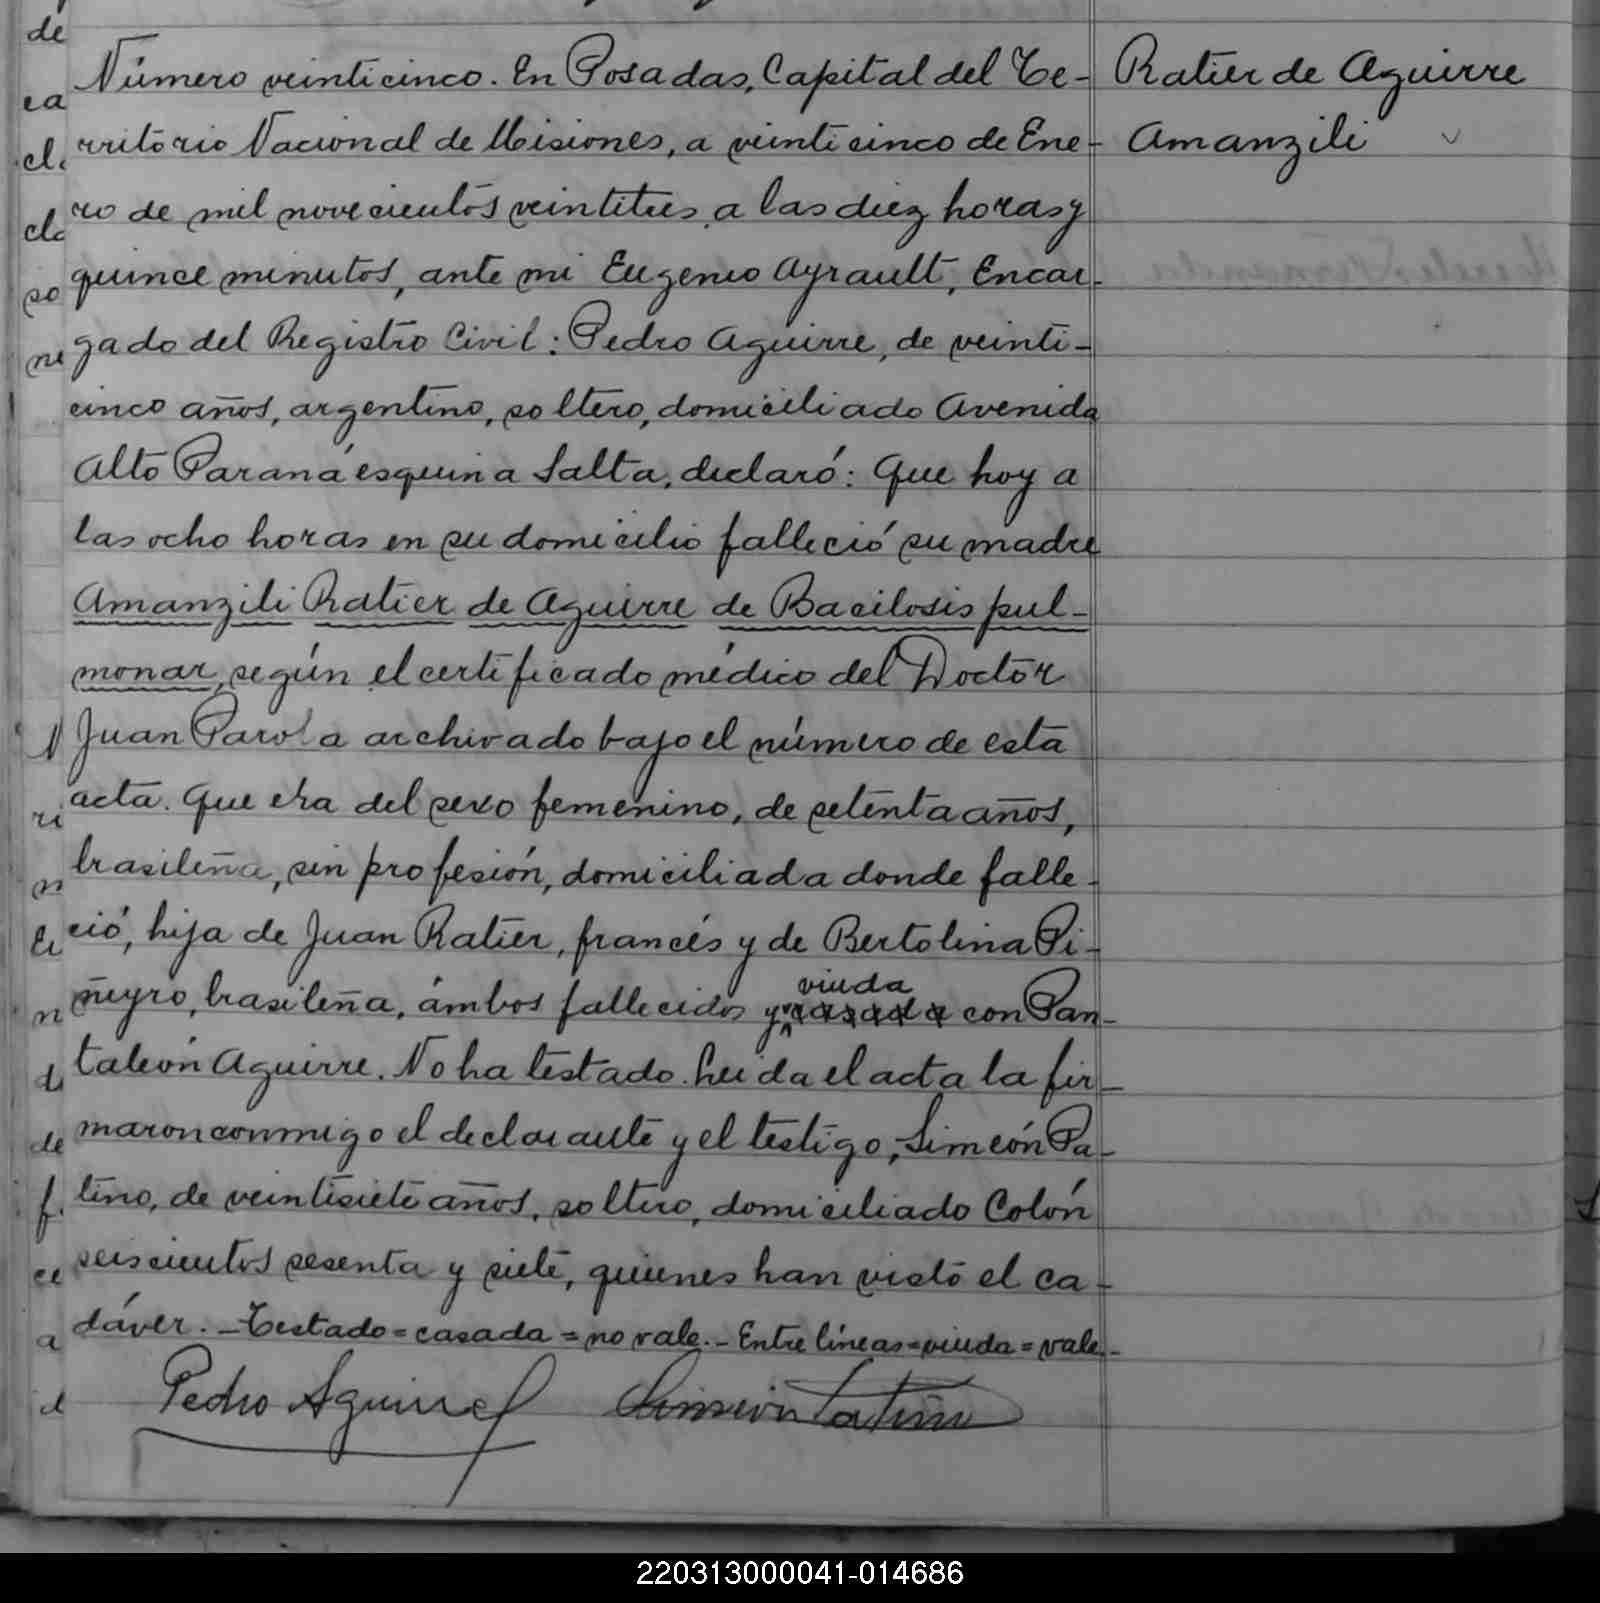 Número veinticinco. En Posadas, Capital del Te-
rritorio Nacional de Misiones, a veinticinco de Ene-
ro de mil novecientos veintitres, a las diez horas y
quince minutos, ante mi Eugenio Ayrault, Encar-
gado del Registro Civil: Pedro Aguirre, de veinti-
cinco años, argentino, soltero, domiciliado Avenida
Alto Paraná esquina Salta, declaró: Que hoy a
las ocho horas en su domicilio falleció su madre
Amanzili Ratier de Aguirre de Bacilosis pul-
monar, según el certificado médico del Doctor
Juan Parola archivado bajo el número de esta
acta. Que era del sexo femenino, de setenta años,
brasileña, sin profesión, domiciliada donde falle-
ció, hija de Juan Ratier, francés y de Bertolina Pi-
ñeyro, brasileña, ámbos fallecidos y viuda casada con Pan-
taleón Aguirre. No ha testado. Leida el acta la fir-
maron conmigo el declarante y el testigo, Simeón Pa-
tino, de veintisiete años, soltero, domiciliado Colón
seiscientos sesenta y siete, quienes han visto el ca-
dáver. - Testado = casada = no vale. - Entre líneas = viuda = vale. -
Pedro Aguirre
Ratier de Aguirre
Amanzili
220313000041-014686